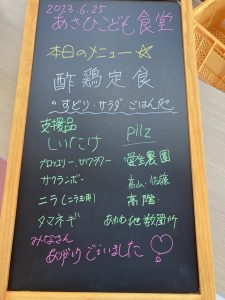 2023.6.25
あさひこども食堂
本日のメニュー☆
酢鶏定食
○すどり・サラダ・ごはん他
支援品
しいたけ pilz
ブロッコリー、カリフラワー 愛生農園
サクランボ 高山、佐藤
ニラ(ニラ玉用) 高階
タマネギ
みなさん
ありがとうございました♡